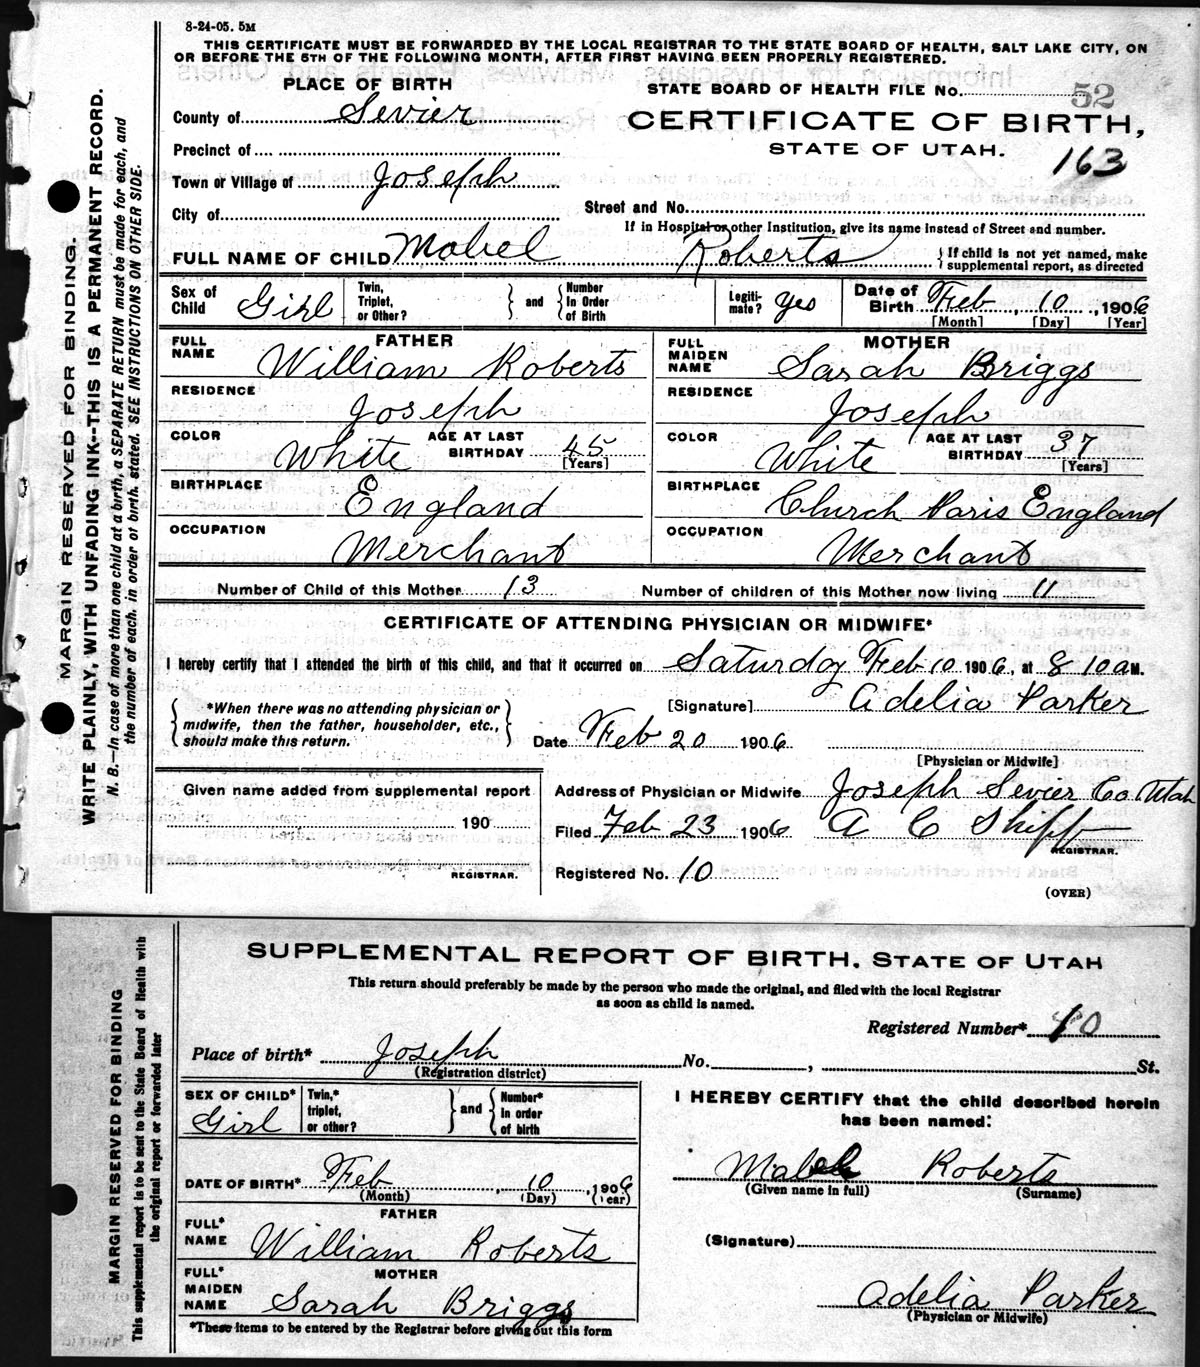 8-24-05. 5M
THIS CERTIFICATE MUST BE FORWARDED BY THE LOCAL REGISTRAR TO THE STATE BOARD OF HEALTH, SALT LAKE CITY, ON
OR BEFORE THE 5TH OF THE FOLLOWING MONTH, AFTER FIRST HAVING BEEN PROPERLY REGISTERED.
PLACE OF BIRTH
STATE BOARD OF HEALTH FILE No. 52
County of Sevier
CERTIFICATE OF BIRTH,
Precinct of
STATE OF UTAH. 163
Town or Village of Joseph
City of
Street and No.
If in Hospital or other Institution, give its name instead of Street and number.
FULL NAME OF CHILD Mabel Roberts { If child is not yet named, make
supplemental report, as directed
Sex of Child Girl
Twin, Triplet, or Other? } and { Number In Order of Birth
Legiti-mate? yes
Date of Birth Feb 10, 1906
[Month] [Day] [Year]
FATHER
FULL NAME William Roberts
RESIDENCE Joseph
COLOR White AGE AT LAST BIRTHDAY 45
[Years]
BIRTHPLACE England
OCCUPATION Merchant
MOTHER
FULL MAIDEN NAME Sarah Briggs
RESIDENCE Joseph
COLOR White AGE AT LAST BIRTHDAY 37
[Years]
BIRTHPLACE Church Paris England
OCCUPATION Merchant
Number of Child of this Mother 13 Number of children of this Mother now living 11
CERTIFICATE OF ATTENDING PHYSICIAN OR MIDWIFE*
I hereby certify that I attended the birth of this child, and that it occurred on Saturday Feb 10 1906, at 8 10 a M.
{ *When there was no attending physician or
midwife, then the father, householder, etc.,
should make this return. }
[Signature] Adelia Parker
Date Feb 20 1906
[Physician or Midwife]
Given name added from supplemental report
190
REGISTRAR.
Address of Physician or Midwife Joseph Sevier Co Utah
Filed Feb 23 1906 A C Shipp
REGISTRAR.
Registered No. 10
(OVER)
MARGIN RESERVED FOR BINDING.
WRITE PLAINLY, WITH UNFADING INK--THIS IS A PERMANENT RECORD.
N. B.—In case of more than one child at a birth, a SEPARATE RETURN must be made for each, and
the number of each, in order of birth, stated. SEE INSTRUCTIONS ON OTHER SIDE.
SUPPLEMENTAL REPORT OF BIRTH, STATE OF UTAH
This return should preferably be made by the person who made the original, and filed with the local Registrar
as soon as child is named.
Registered Number* 10
Place of birth* Joseph No. , St.
(Registration district)
SEX OF CHILD* Girl
Twin,* triplet, or other? } and { Number* in order of birth
DATE OF BIRTH* Feb, 10, 1906
(Month) (Day) (Year)
FATHER
FULL* NAME William Roberts
MOTHER
FULL* MAIDEN NAME Sarah Briggs
*These items to be entered by the Registrar before giving out this form
I HEREBY CERTIFY that the child described herein
has been named:
Mabel Roberts
(Given name in full) (Surname)
(Signature)
Adelia Parker
(Physician or Midwife)
MARGIN RESERVED FOR BINDING
This supplemental report is to be sent to the State Board of Health with
the original report or forwarded later